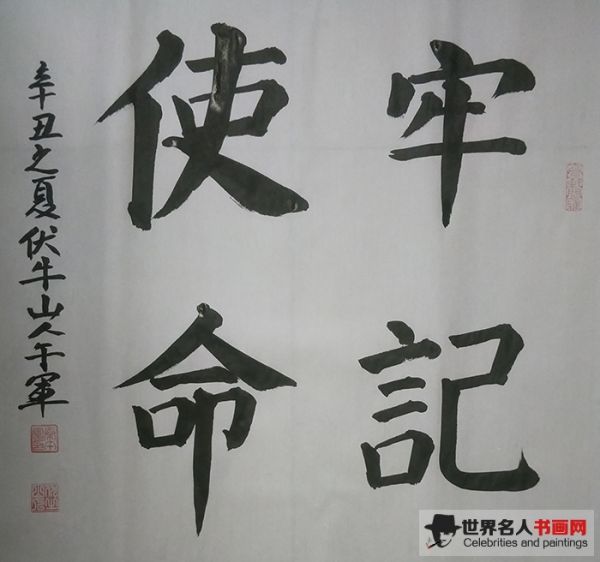 牢記
使命
辛丑之夏伏牛山人午軍
世界名人书画网
Celebrities and paintings